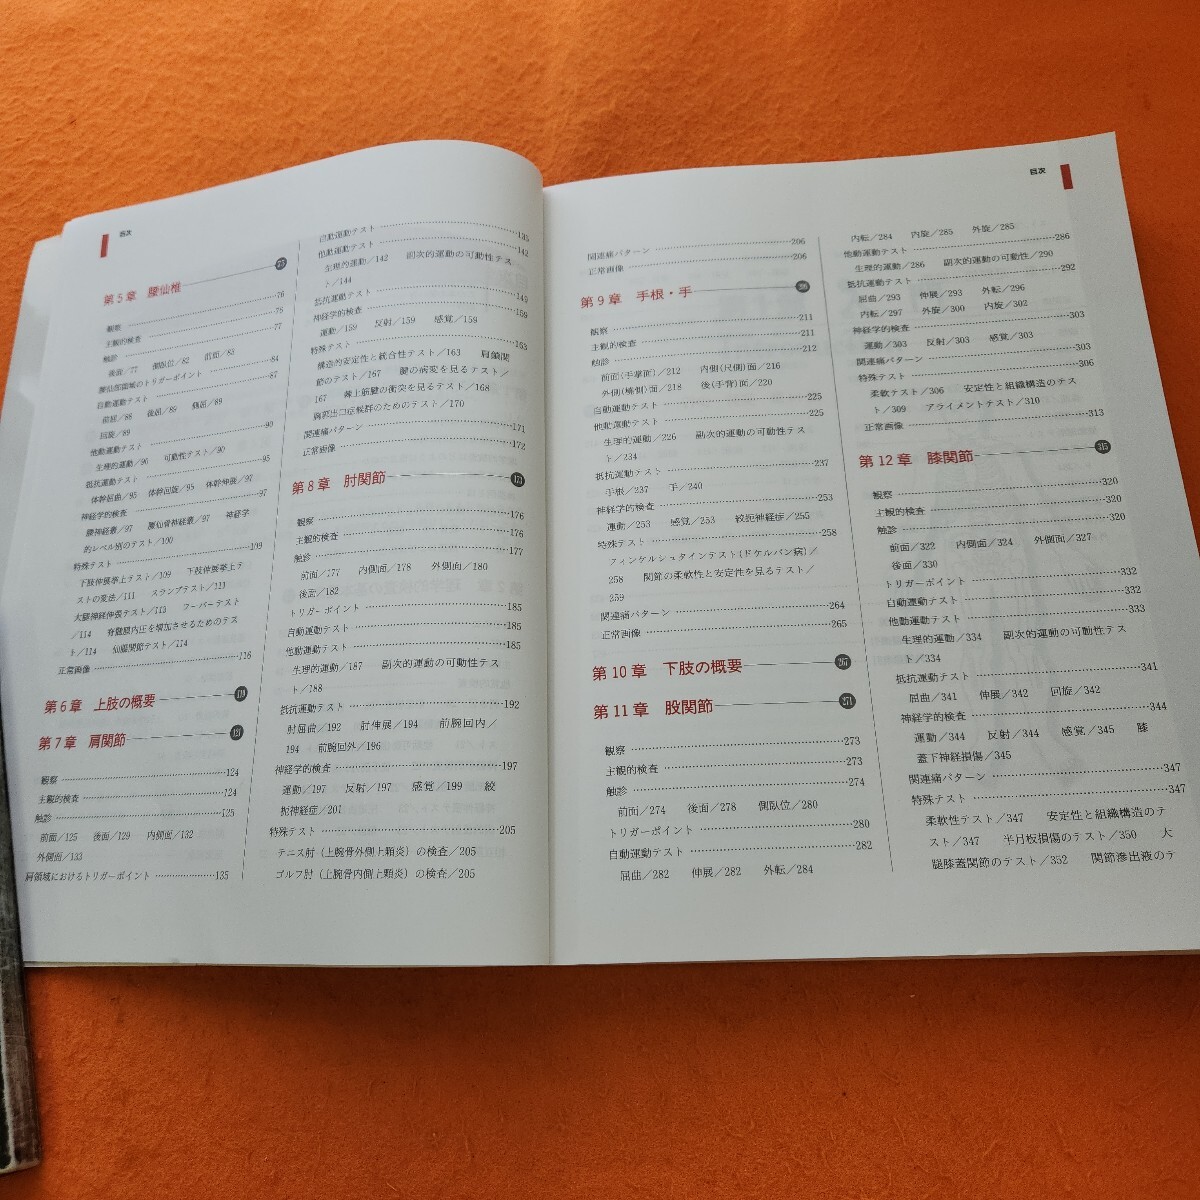 目次
第5章 腰仙椎 75
観察 76
主観的検査 76
触診 77
後面/77 側臥位/82 前面/83
腰仙部領域のトリガーポイント 84
自動運動テスト 87
前屈/88 後屈/89 側屈/89
回旋/89
他動運動テスト 90
生理的運動/90 可動性テスト/90
抵抗運動テスト 95
体幹屈曲/95 体幹回旋/95 体幹伸展/97
神経学的検査 97
腰神経叢/97 腰仙骨神経叢/97 神経学
的レベル別のテスト/100
特殊テスト 109
下肢伸展挙上テスト/109 下肢伸展挙上テ
ストの変法/111 スランプテスト/113
大腿神経伸張テスト/113 フーバーテスト
/114 脊髄膜内圧を増加させるためのテス
ト/114 仙腸関節テスト/114
正常画像 116
第6章 上肢の概要 119
第7章 肩関節 121
観察 124
主観的検査 124
触診 125
前面/125 後面/129 内側面/132
外側面/133
肩領域におけるトリガーポイント 135
自動運動テスト 135
他動運動テスト 142
生理的運動/142 副次的運動の可動性テス
ト/144
抵抗運動テスト 149
神経学的検査 159
運動/159 反射/159 感覚/159
特殊テスト 163
構造的安定性と統合性テスト/163 肩鎖関
節のテスト/167 腱の病変を見るテスト/
167 棘上筋腱の衝突を見るテスト/168
胸郭出口症候群のためのテスト/170
関連痛パターン 171
正常画像 172
第8章 肘関節 173
観察 176
主観的検査 176
触診 177
前面/177 内側面/178 外側面/180
後面/182
トリガーポイント 185
自動運動テスト 185
他動運動テスト 185
生理的運動/187 副次的運動の可動性テス
ト/188
抵抗運動テスト 192
肘屈曲/192 肘伸展/194 前腕回内/
194 前腕回外/196
神経学的検査 197
運動/197 反射/197 感覚/199 絞
扼神経症/201
特殊テスト 205
テニス肘(上腕骨外側上顆炎)の検査/205
ゴルフ肘(上腕骨内側上顆炎)の検査/205
目次
関連痛パターン 206
正常画像 206
第9章 手根・手
観察 211
主観的検査 211
触診 212
前面(手掌面)/212 内側(尺側)面/216
外側(橈側)面/218 後(手背)面/220
自動運動テスト 225
他動運動テスト 225
生理的運動/226 副次的運動の可動性テス
ト/234
抵抗運動テスト 237
手根/237 手/240
神経学的検査 253
運動/253 感覚/253 絞扼神経症/255
特殊テスト 258
フィンケルシュタインテスト(ドケルバン病)/
258 関節の柔軟性と安定性を見るテスト/
259
関連痛パターン 264
正常画像 265
第10章 下肢の概要 267
第11章 股関節 271
観察 273
主観的検査 273
触診 274
前面/274 後面/278 側臥位/280
トリガーポイント 280
自動運動テスト 282
屈曲/282 伸展/282 外転/284
内転/284 内旋/285 外旋/285
他動運動テスト 286
生理的運動/286 副次的運動の可動性/290
抵抗運動テスト 292
屈曲/293 伸展/293 外転/296
内転/297 外旋/300 内旋/302
神経学的検査 303
運動/303 反射/303 感覚/303
関連痛パターン 303
特殊テスト 306
柔軟テスト/306 安定性と組織構造のテス
ト/309 アライメントテスト/310
正常画像 313
第12章 膝関節 315
観察 320
主観的検査 320
触診 320
前面/322 内側面/324 外側面/327
後面/330
トリガーポイント 332
自動運動テスト 332
他動運動テスト 333
生理的運動/334 副次的運動の可動性テス
ト/334
抵抗運動テスト 341
屈曲/341 伸展/342 回旋/342
神経学的検査 344
運動/344 反射/344 感覚/345 膝
蓋下神経損傷/345
関連痛パターン 347
特殊テスト 347
柔軟性テスト/347 安定性と組織構造のテ
スト/347 半月板損傷のテスト/350 大
腿膝蓋関節のテスト/352 関節滲出液のテ